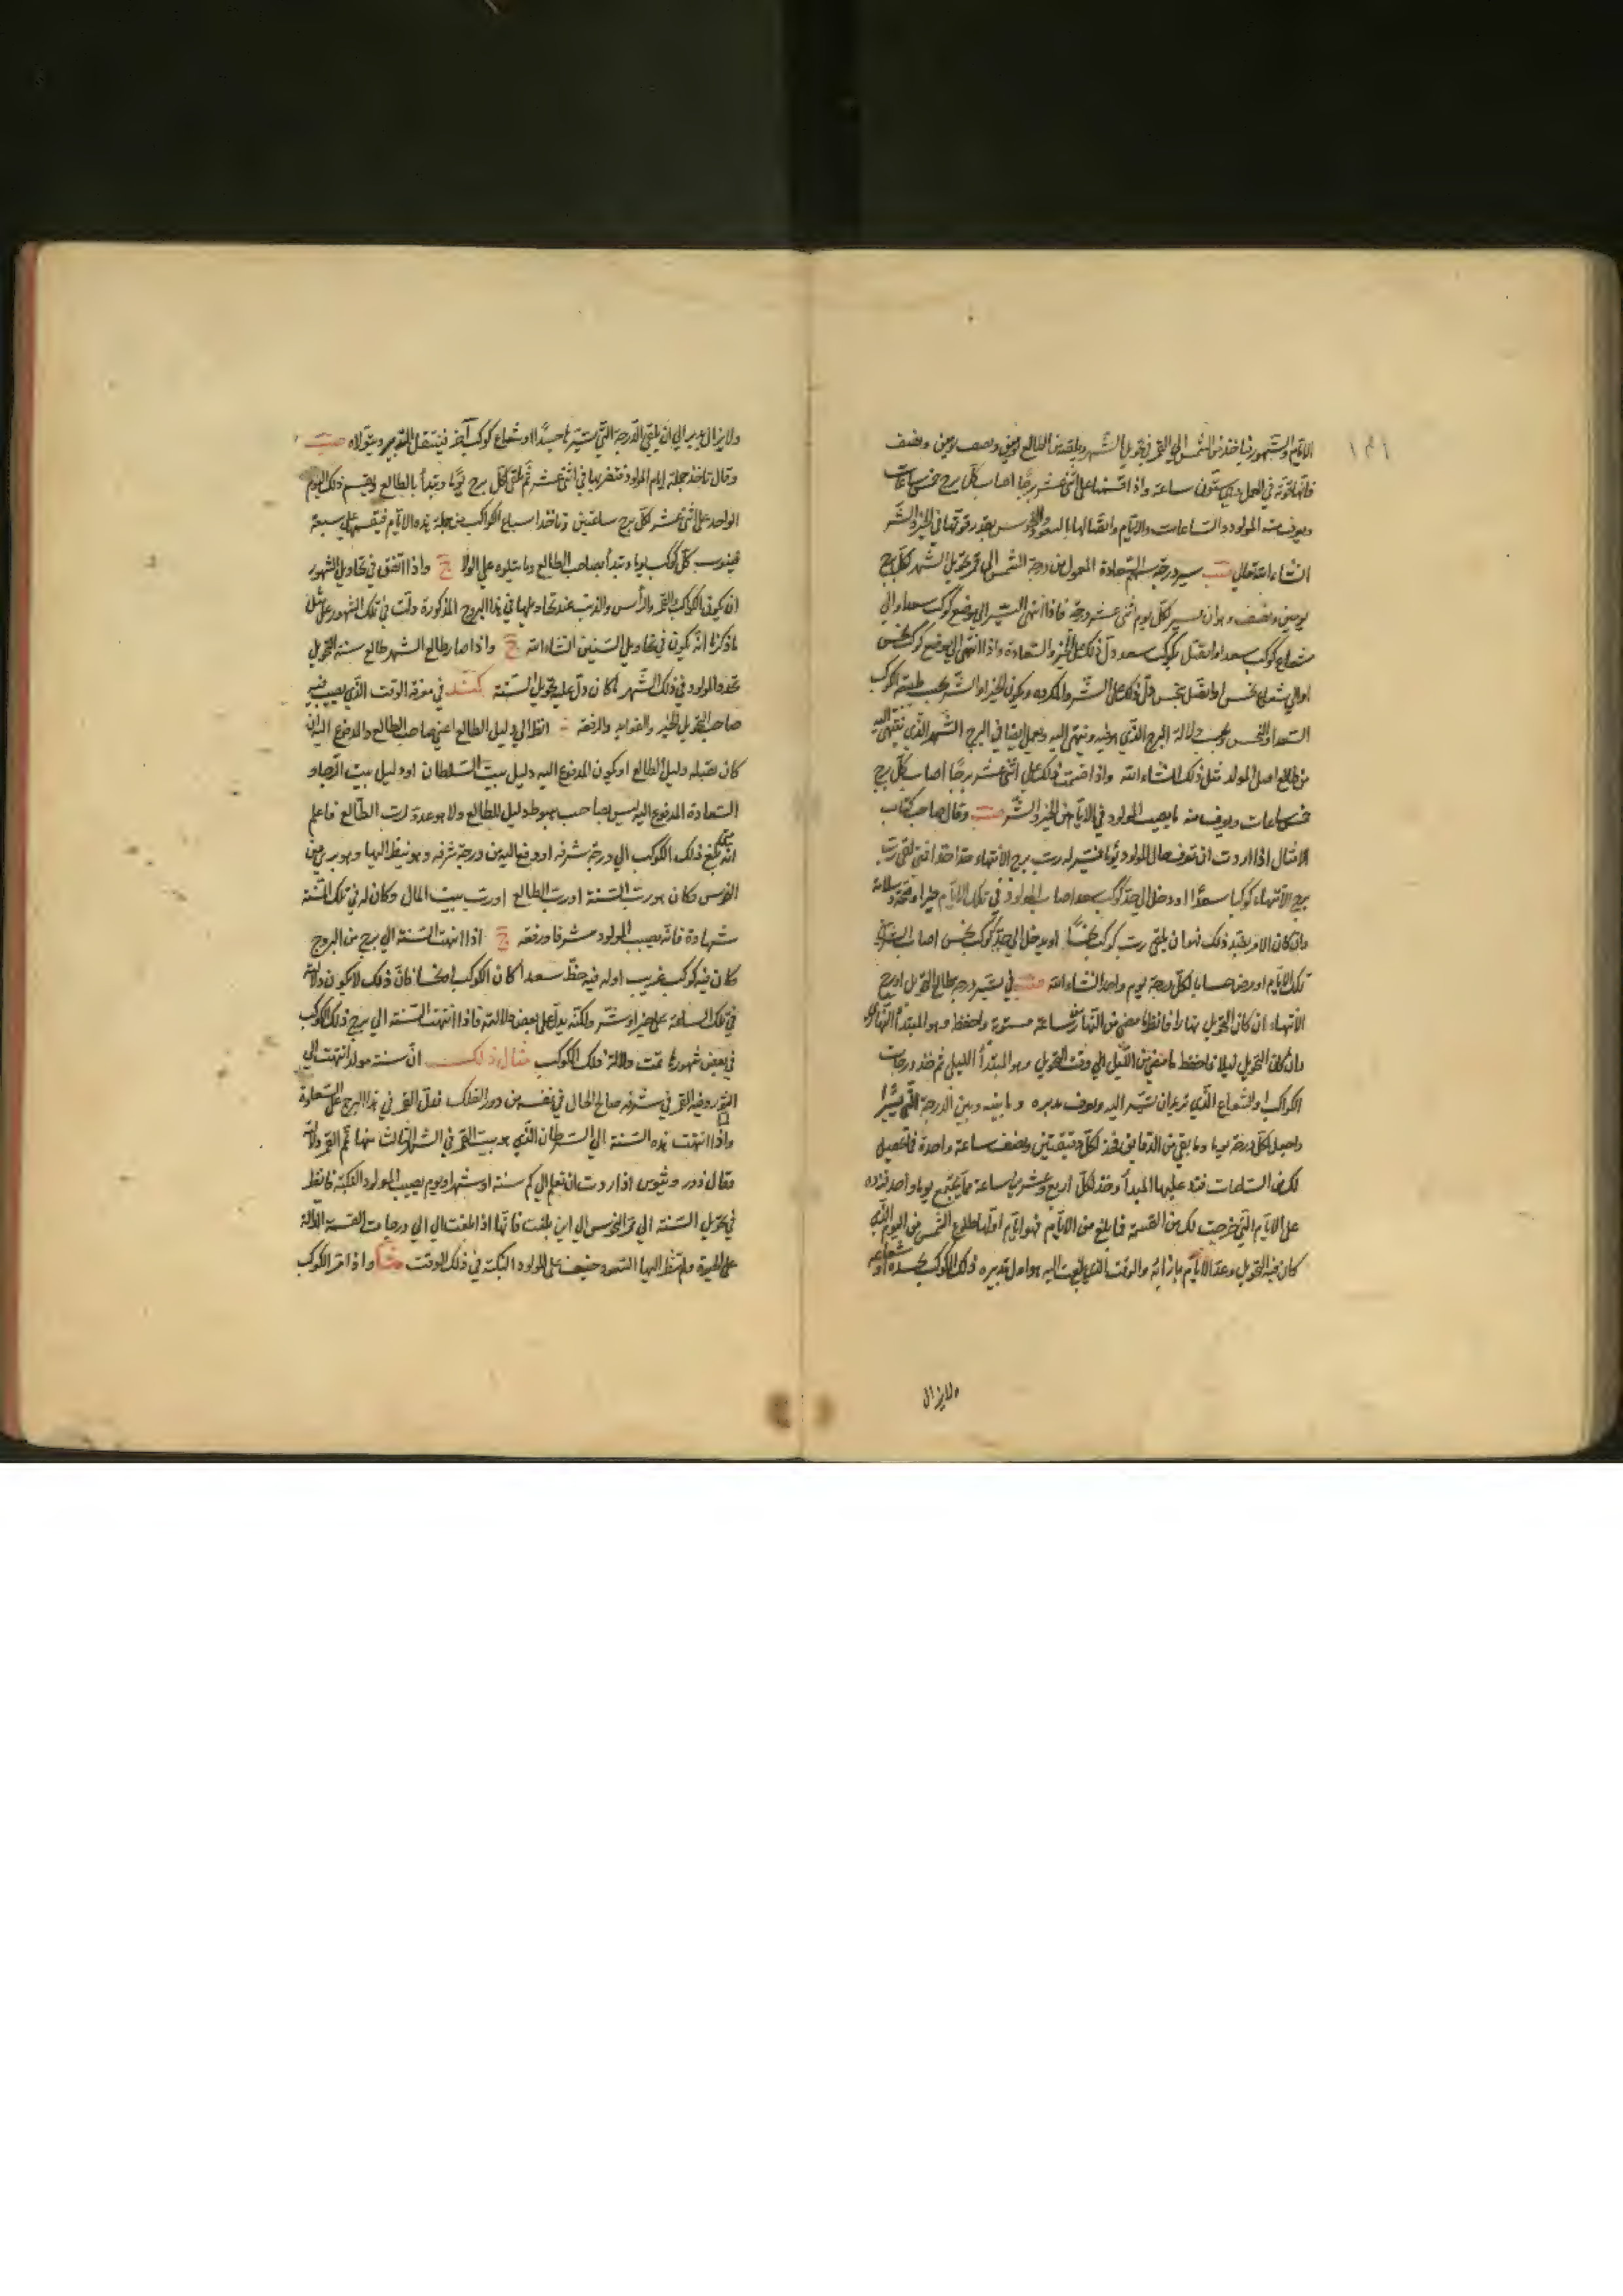 الايام والشهور فياخذ من الشمس الى القمر في تحويل الشهر ويلقيه من الطالع يومين ونصف يومين ونصف
ستون ساعة واذا قسمتها على اثني عشر برجا اصاب كل برج خمس ساعات
المولود والساعات والايام واتصالها بالسعود والنحوس بقدر قوتها في الخير والشر
ان شاء الله تعالى سير درجة سهم السعادة المعمول من درجة الشمس الى القمر في تحويل الشهر لكل برج
يومين ونصف وهو ان يسير لكل يوم اثني عشر درجة فاذا انتهى التسيير الى موضع كوكب سعد او الى
شعاع كوكب سعد او اتصل بكوكب سعد دل ذلك على الخير والسعادة واذا انتهى الى موضع كوكب نحس
او الى شعاع نحس او اتصل بنحس دل ذلك على الشر والمكروه ويكون الخير او الشر بحسب طبيعة الكوكب
السعد او النحس وبحسب دلالة البرج الذي هو فيه وينتهي اليه ويعمل ايضا في البرج الشهر الذي ينتهي اليه
من طالع اصل المولد مثل ذلك ان شاء الله واذا قسمت ذلك على اثني عشر برجا اصاب كل برج
خمس ساعات ويعرف منه ما يصيب المولود في الايام من الخير والشر وقال صاحب كتاب
الامثال اذا اردت ان تعرف حال المولود يوما فسير له رب برج الانتهاء حدا حدا فمتى لقي رب
برج الانتهاء كوكبا سعدا او دخل الى حد كوكب سعد اصاب المولود في تلك الايام خيرا وصحة وسلامة
وان كان الامر بضد ذلك اعني ان يلقى رب كوكب نحسا او يدخل الى حد كوكب نحس اصاب
تلك الايام حسابا لكل درجة يوم واحد ان شاء الله في تسيير درجة طالع التحويل او برج
الانتهاء ان كان التحويل نهارا فانظر ما مضى من النهار من ساعة مستوية واحفظه وهو المبتدأ النهاري
وان كان التحويل ليلا فاحفظ ما مضى من الليل الى وقت التحويل وهو المبتدأ الليلي ثم خذ درجات
الكواكب او الشعاع الذي تريد ان تسير اليه وتعرف مدبره وما بينه وبين الدرجة التي تسير
واجعل لكل درجة يوما وما بقي من الدقايق فخذ لكل دقيقتين ونصف ساعة واحدة فما تحصل
لك من الساعات فزد عليها المبدأ وخذ لكل اربع وعشرين ساعة مما يجتمع يوما واحد فزده
على الايام التي خرجت لك من القسمة فما بلغ من الايام فهو ايام اولها طلوع الشمس من اليوم الذي
كان فيه التحويل وعد الايام بازائه والوقت الذي بلغت اليه هو اول تدبيره ذلك الكوكب بجسده او شعاعه
ولايزال
ولايزال يدبر الى ان يلقى الدرجة التي تسير جسدا او شعاع كوكب آخر فينتقل التدبير ويتولاه
وقال تاخذ جملة ايام المولود فتضربها في اثني عشر ثم تلقى لكل برج يوما وتبدأ بالطالع وتقسم ذلك اليوم
الواحد على اثني عشر لكل برج ساعتين وتاخذ اسباع الكواكب من جملة هذه الايام فيقسم على سبعة
فينوب كل كوكب يوما وتبدأ بصاحب الطالع وما يتلوه على الولا ج واذا اتفق في تحاويل الشهور
ان يكون الكواكب القمر والرأس والذنب عند تحاويلها في هذا البروج المذكورة دلت في تلك الشهور على مثل
ما ذكرنا انه يكون في تحاويل السنين ان شاء الله ج واذا صار طالع الشهر طالع سنة التحويل
المولود في ذلك الشهر ما كان دل عليه تحويل السنة في معرفة الوقت الذي يصيب فيه
صاحب التحويل الخير والفوايد والرفعة انظر الى دليل الطالع اعني صاحب الطالع والمدفوع اليه ان
كان يقبله دليل الطالع او يكون المدفوع اليه دليل بيت السلطان او دليل بيت الرجاء و
السعادة المدفوع اليه ليس بصاحب هبوط دليل الطالع ولا هو عدو لرب الطالع فاعلم
انه متى بلغ ذلك الكوكب الى درجة شرفه او دفع اليه من درجة شرفه وهو ينظر اليها وهو بري من
النحوس وكان هو رب السنة او رب الطالع او رب بيت المال وكان له في تلك السنة
شهادة فانه يصيب المولود شرفا ورفعة ج اذا انتهت السنة الى برج من البروج
كان فيه كوكب غريب او له فيه حظ سعدا كان الكوكب او نحسا فان ذلك لا يكون دلالته
في تلك الساعة على خير او شر ولكنه يدل على بعض دلالته فاذا انتهت السنة الى برج ذلك الكوكب
في بعض شهورها تمت دلالة ذلك الكوكب مثال ذلك ان سنة مولد انتهت الى
الثور وفيه القمر في شرفه صالح الحال في نفسه من دور الفلك فدل القمر في هذا البرج على السعادة
واذا انتهت هذه السنة الى السرطان الذي هو بيت القمر في الشهر الثالث منها تم القمر دلالته
فقال ذورو وثيوس اذا اردت ان تعلم الى كم سنة او شهر او يوم يصيب المولود النكبة فانظر
في تحويل السنة الى ممر النحوس الى اين بلغت فانها اذا بلغت الى الى درجات القسمة الدالة
على الحيوة ولم تنظر اليها السعود خيف على المولود النكبة في ذلك الوقت واذا مر الكوكب